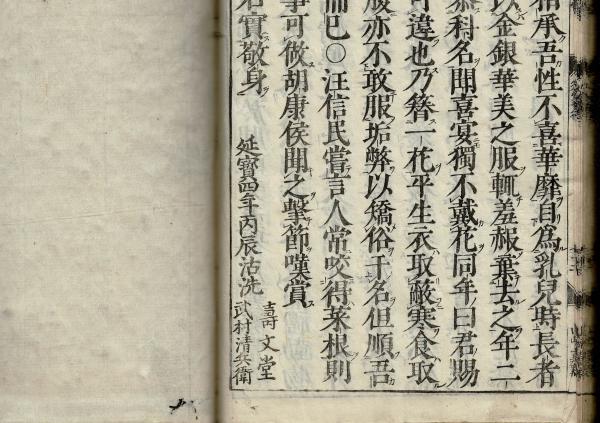 相承吾性不喜華靡自為乳兒時長者
以金銀華美之服輒羞赧棄去之年二
科名聞喜宴獨不戴花同年曰君賜
可違也乃簪一花平生衣取蔽寒食取
腹亦不敢服垢弊以矯俗干名但順吾
而已○汪信民嘗言人常咬得菜根則
事可做胡康侯聞之擊節嘆賞
右實敬身
延寶四年丙辰沽洗
壽文堂
武村清兵衛